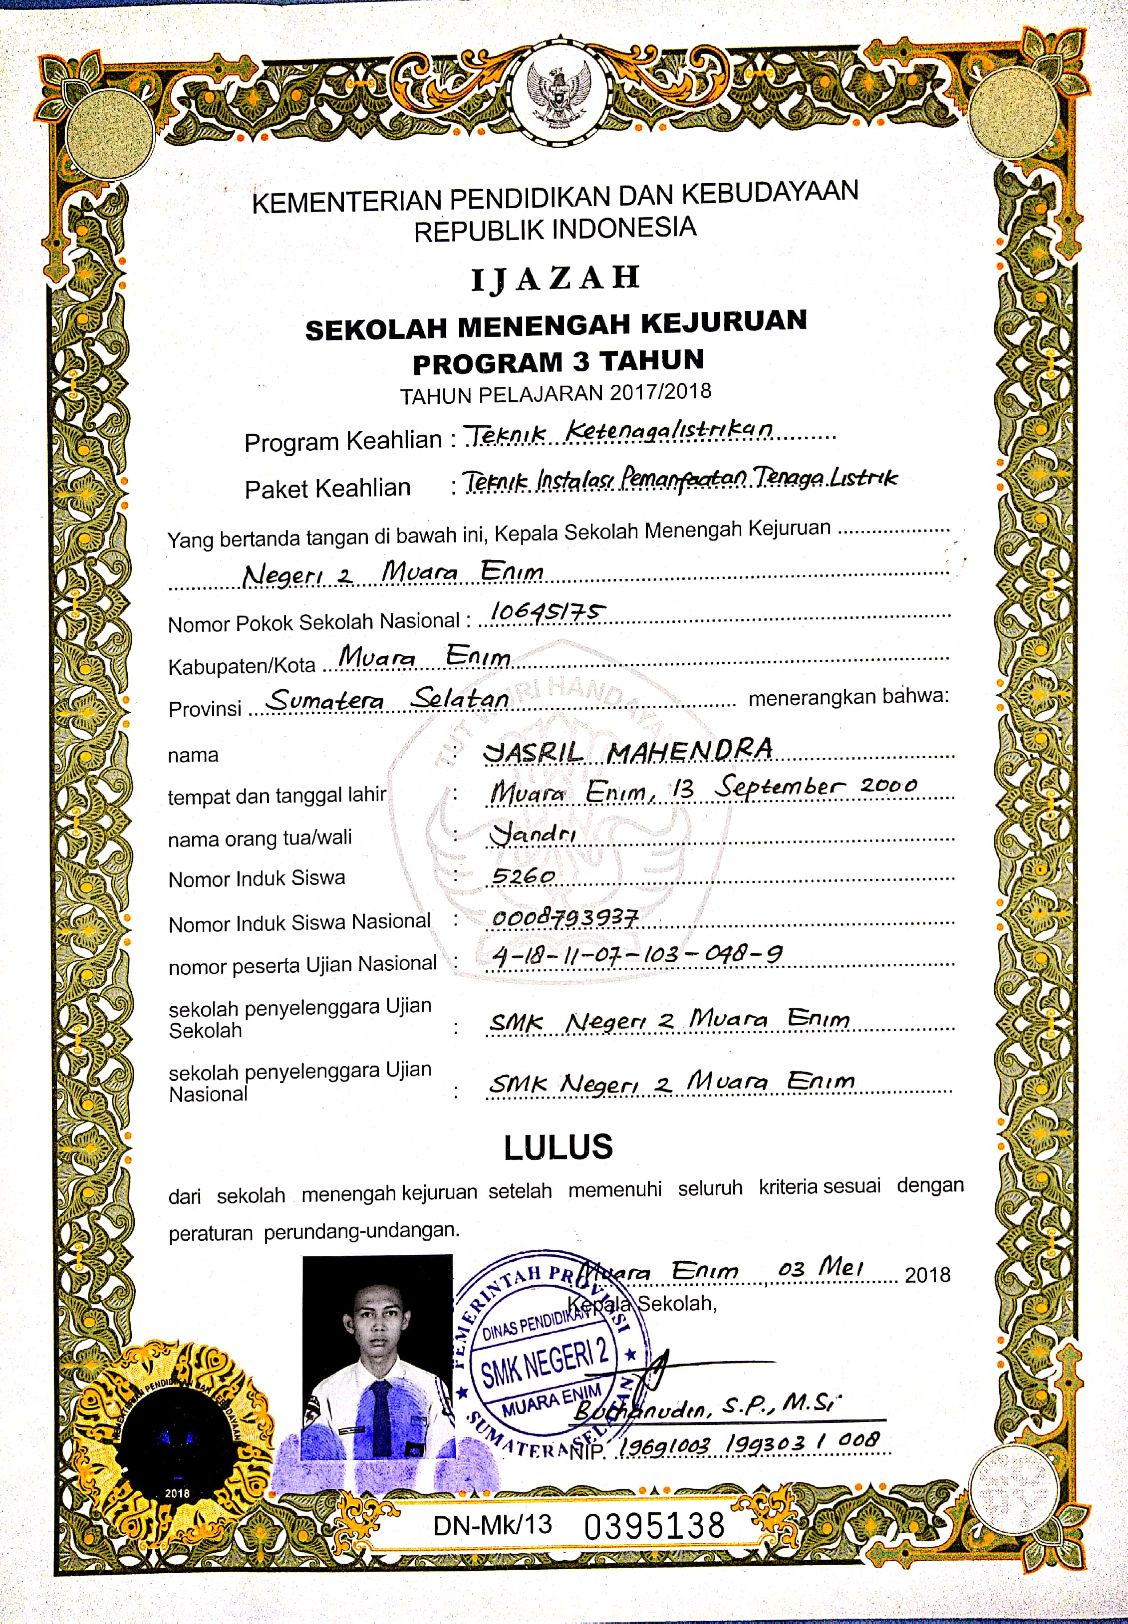 KEMENTERIAN PENDIDIKAN DAN KEBUDAYAAN
REPUBLIK INDONESIA
IJAZAH
SEKOLAH MENENGAH KEJURUAN
PROGRAM 3 TAHUN
TAHUN PELAJARAN 2017/2018
Program Keahlian : Teknik Ketenagalistrikan
Paket Keahlian : Teknik Instalasi Pemanfaatan Tenaga Listrik
Yang bertanda tangan di bawah ini, Kepala Sekolah Menengah Kejuruan
Negeri 2 Muara Enim
Nomor Pokok Sekolah Nasional : 10645175
Kabupaten/Kota Muara Enim
Provinsi Sumatera Selatan menerangkan bahwa:
TUT WURI HANDAYANI
nama : YASRIL MAHENDRA
tempat dan tanggal lahir : Muara Enim, 13 September 2000
nama orang tua/wali : Yandri
Nomor Induk Siswa : 5260
Nomor Induk Siswa Nasional : 0008793937
nomor peserta Ujian Nasional : 4-18-11-07-103-098-9
sekolah penyelenggara Ujian
Sekolah : SMK Negeri 2 Muara Enim
sekolah penyelenggara Ujian
Nasional : SMK Negeri 2 Muara Enim
LULUS
dari sekolah menengah kejuruan setelah memenuhi seluruh kriteria sesuai dengan
peraturan perundang-undangan.
Muara Enim, 03 Mei 2018
Kepala Sekolah,
PEMERINTAH PROVINSI
DINAS PENDIDIKAN
SMK NEGERI 2
MUARA ENIM
SUMATERA SELATAN
S.P., M.Si
NIP. 19691003 199303 1 008
2018
DN-Mk/13 0395138